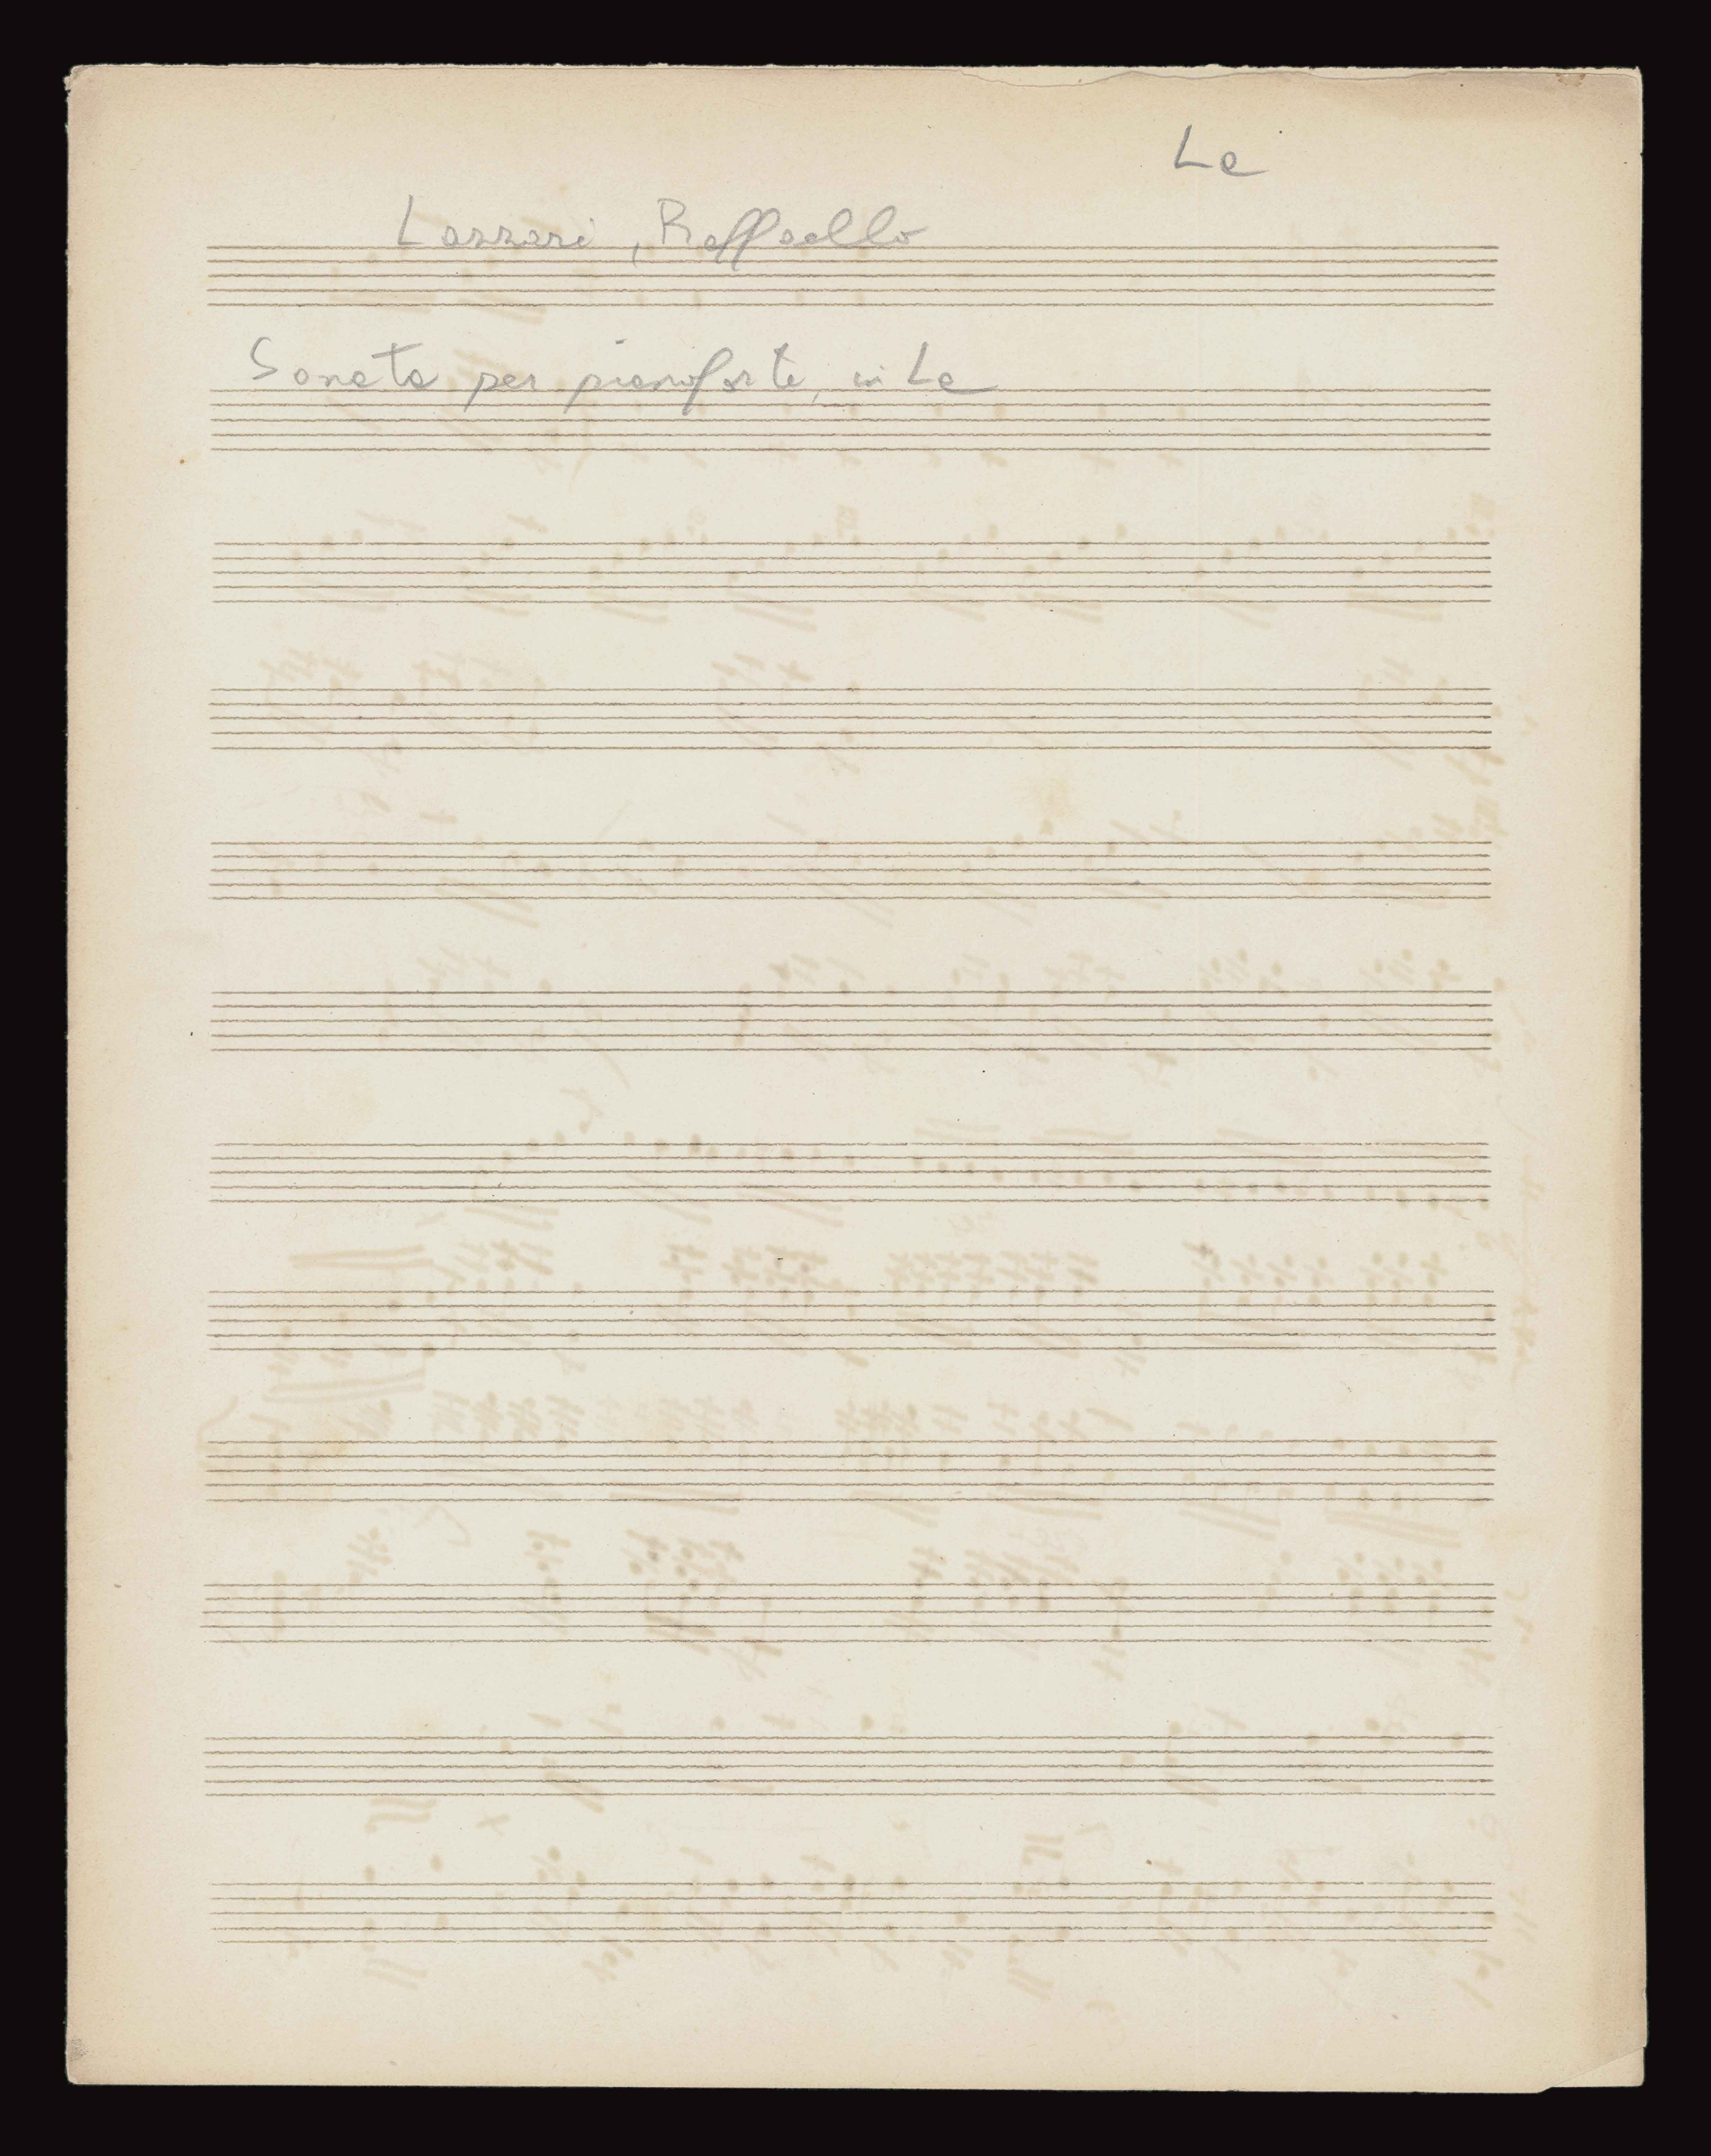 La
Lazzari, Raffaello
Sonata per pianoforte, in La